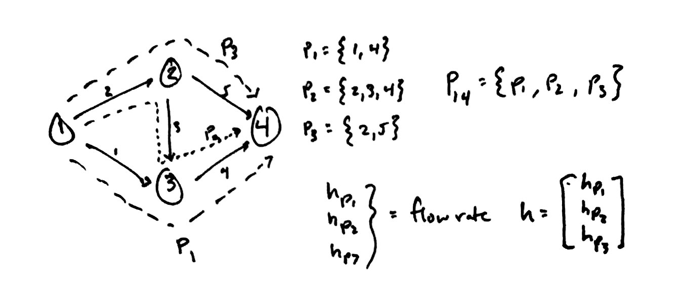 P₃
2
2
5
1
3
P₂
4
1
3
4
P₁
P₁ = {1, 4}
P₂ = {2, 3, 4}
P₃ = {2, 5}
P₁₄ = {P₁, P₂, P₃}
hP₁
hP₂
hP₃
} = flow rate h = [hP₁ hP₂ hP₃]